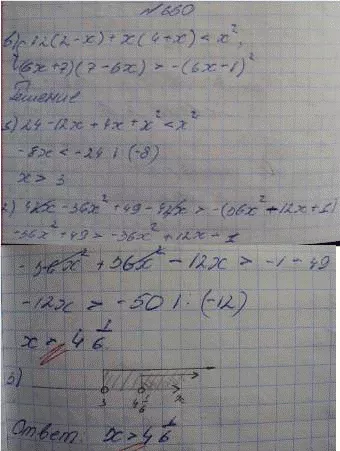 №660
в) 12(2-x)+x(4+x)<x²,
(6x+7)(7-6x)>-(6x-1)²
Решение
1) 24-12x+4x+x²<x²
-8x<-24 | :(-8)
x>3
2) 42x-36x²+49-42x>-(36x²-12x+1)
-36x²+49>-36x²+12x-1
-36x²+36x²-12x>-1-49
-12x>-50 | :(-12)
x>4 1/6
3)
3 4 1/6 x
Ответ: x>4 1/6